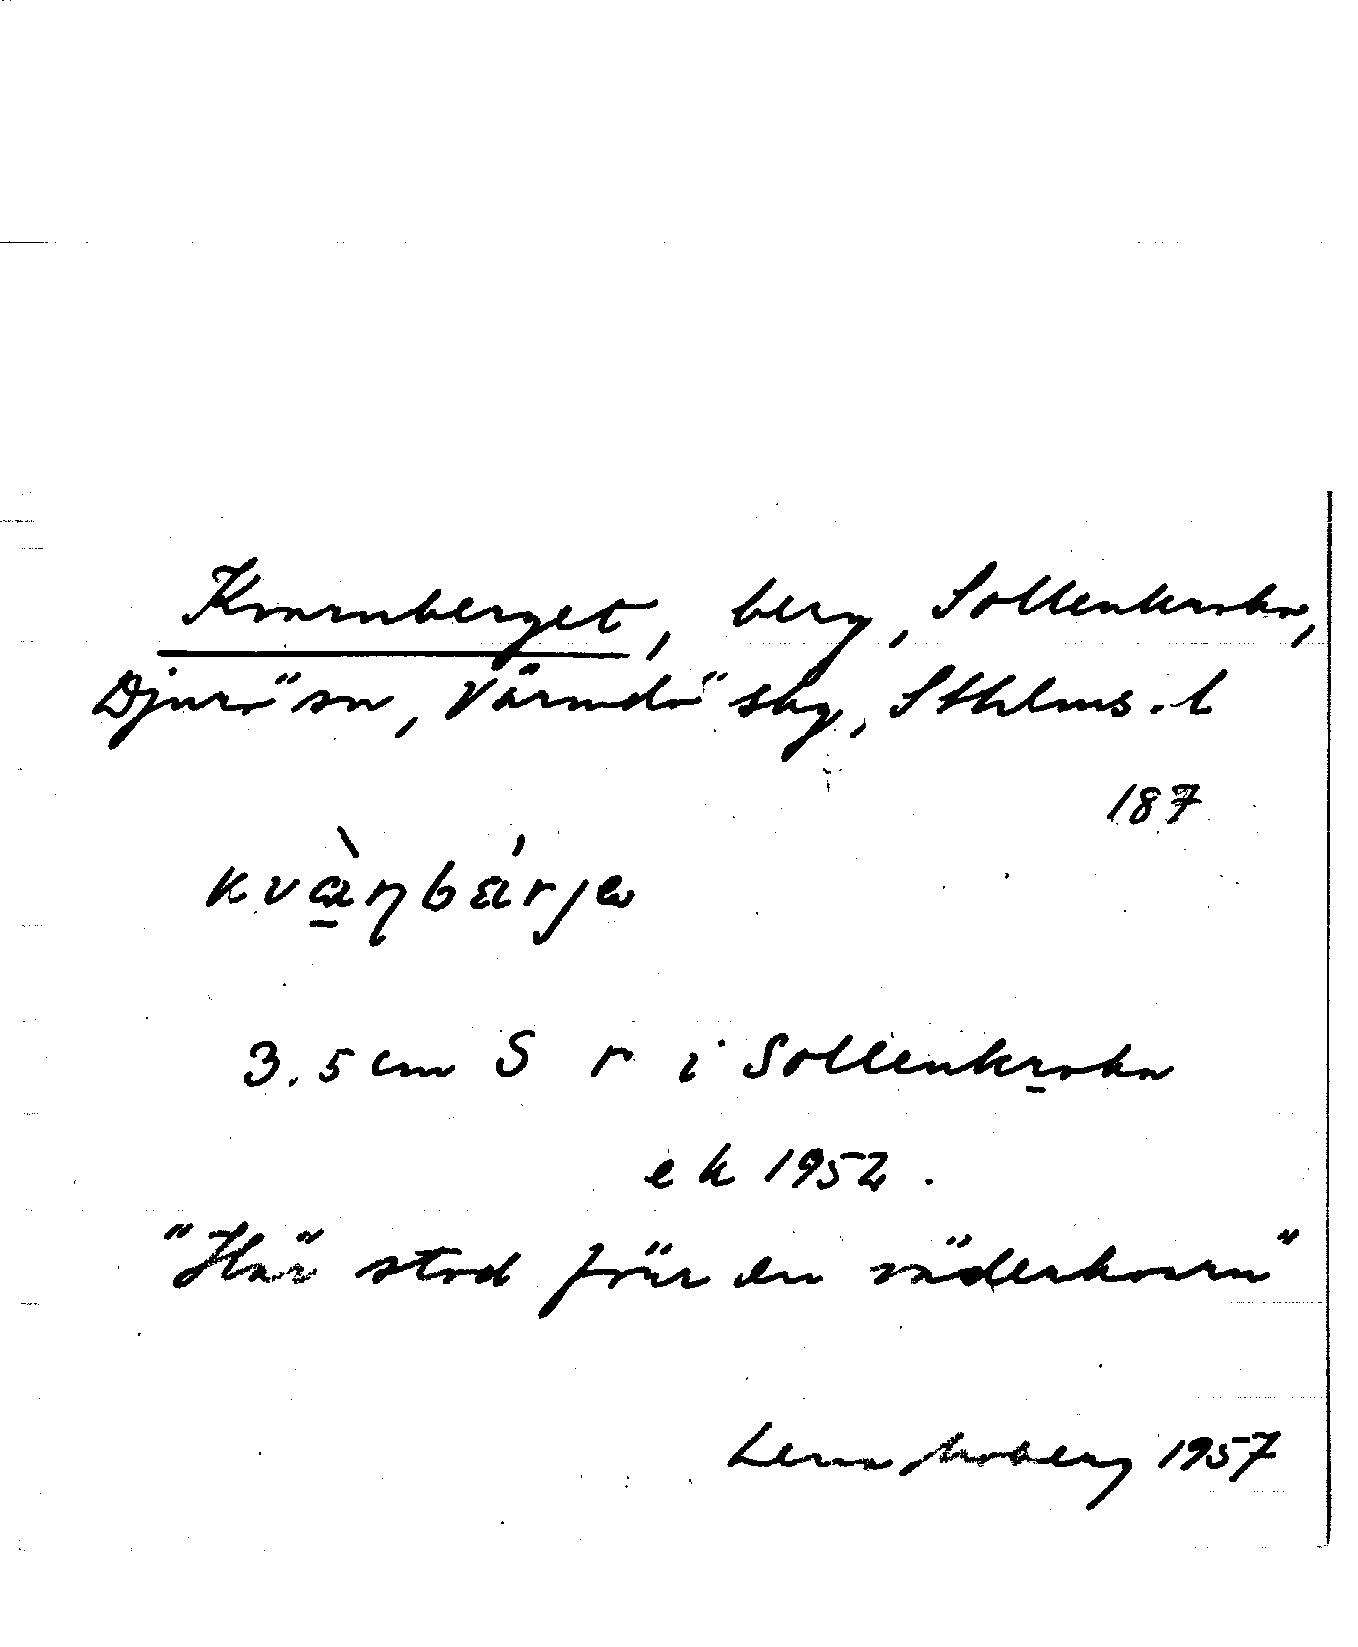 Kvarnberget, berg, Sollenkroka,
Djurö sn, Värmdö skg, Sthlms. l
187
kvàɳbárjə
3.5 cm S r i Sollenkroka
ek 1952.
"Här stod förr en väderkvarn"
Lena Moberg 1957